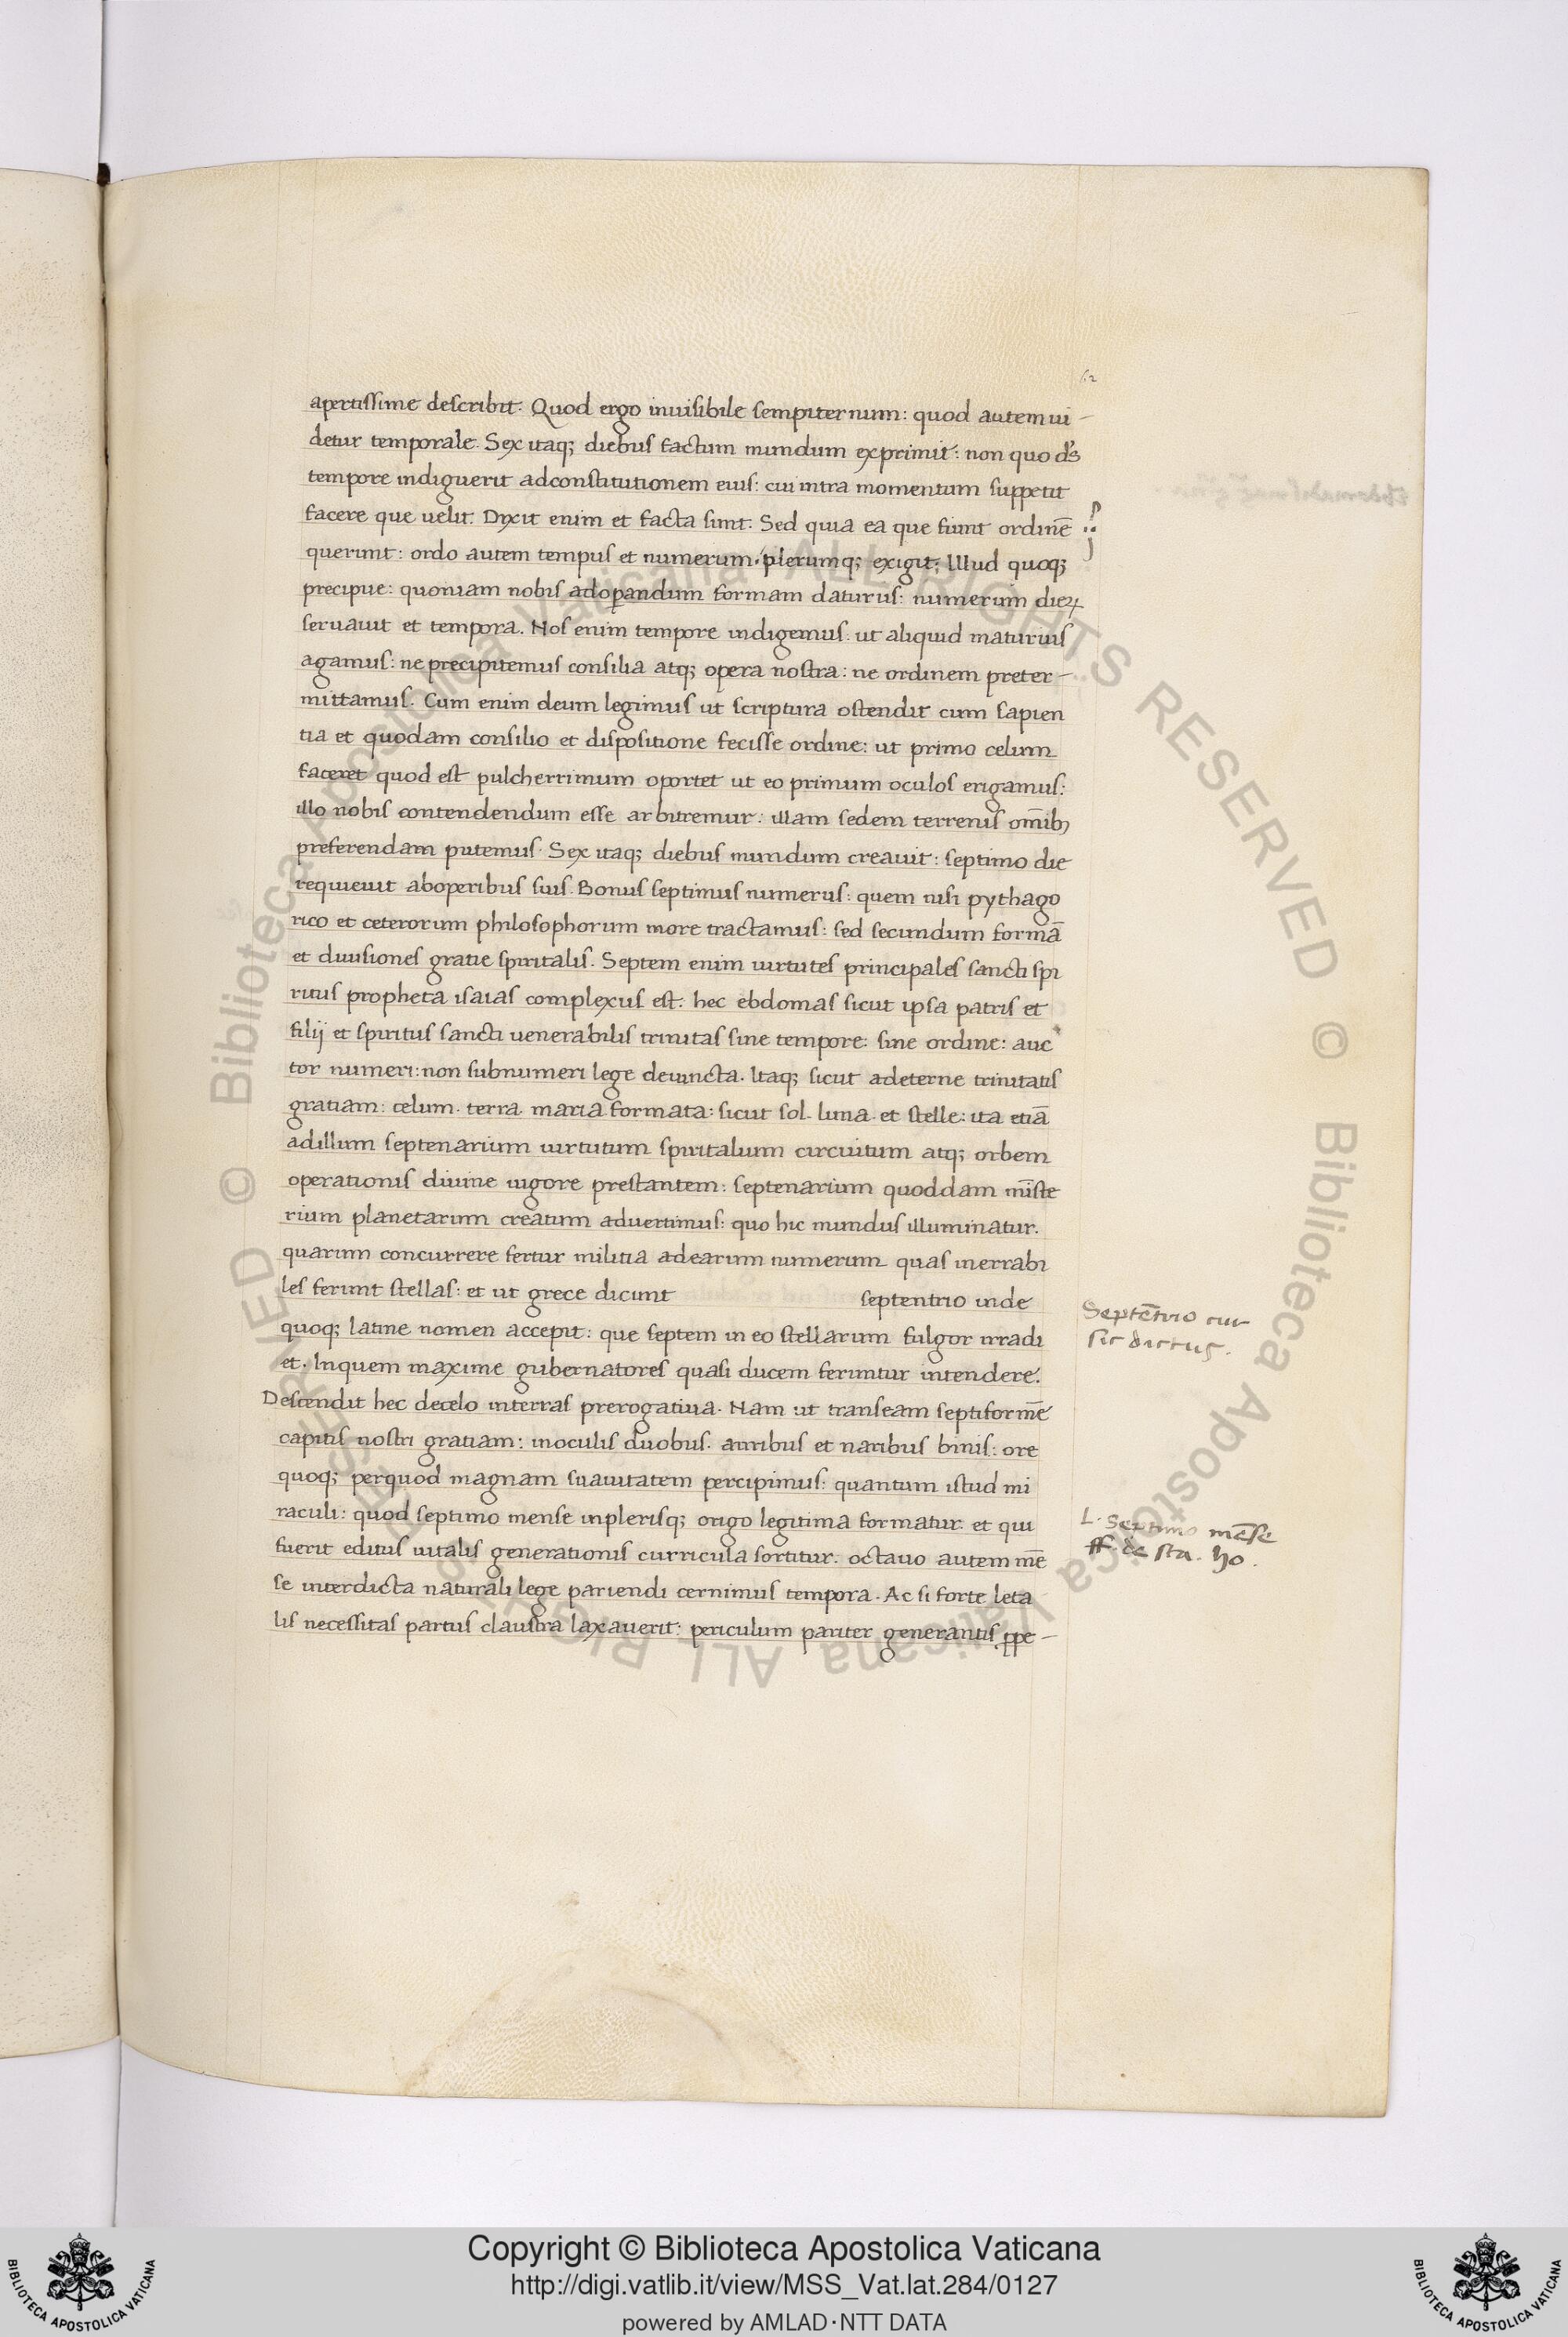 62
apertissime describit. Quod ergo inuisibile sempiternum: quod autem ui-
detur temporale. Sex itaq; diebus factum mundum exprimit: non quo ds̄
tempore indiguerit adconstitutionem eius: cui intra momentum suppetit
facere que uelit. Dixit enim et facta sunt. Sed quia ea que fiunt ordinē
querunt: ordo autem tempus et numerum plerumq; exigit; Illud quoq;
precipue: quoniam nobis adoperandum formam daturus: numerum dieꝝ
seruauit et tempora. Nos enim tempore indigemus: ut aliquid maturius
agamus: ne precipitemus consilia atq; opera nostra: ne ordinem preter-
mittamus. Cum enim deum legimus ut scriptura ostendit cum sapien
tia et quodam consilio et dispositione fecisse ordine: ut primo celum
faceret quod est pulcherrimum oportet ut eo primum oculos erigamus:
illo nobis contendendum esse arbitremur: illam sedem terrenis om̄ib;
preferendam putemus. Sex itaq; diebus mundum creauit: septimo die
requieuit aboperibus suis. Bonus septimus numerus: quem nisi pythago
rico et ceterorum philosophorum more tractamus: sed secundum formā
et diuisiones gratie spiritalis. Septem enim uirtutes principales sancti spi
ritus propheta isaias complexus est. hec ebdomas sicut ipsa patris et
filij et spiritus sancti uenerabilis trinitas sine tempore: sine ordine: auc
tor numeri: non subnumeri lege deuincta. Itaq; sicut adeterne trinitatis
gratiam: celum. terra. maria formata: sicut sol. luna. et stelle: ita etiā
adillum septenarium uirtutum spiritalium circuitum atq; orbem
operationis diuine uigore prestantem: septenarium quoddam mīste
rium planetarum creatum aduertimus: quo hic mundus illuminatur.
quarum concurrere fertur militia adearum numerum quas inerrabi
les ferunt stellas: et ut grece dicunt septentrio inde
quoq; latine nomen accepit: que septem in eo stellarum fulgor irradi
et. Inquem maxime gubernatores quasi ducem feruntur intendere.
Descendit hec decelo interras prerogatiua. Nam ut transeam septiformē
capitis nostri gratiam: inoculis duobus. auribus et naribus binis: ore
quoq; perquod magnam suauitatem percipimus: quantum istud mi
raculi: quod septimo mense inplerisq; origo legitima formatur. et qui
fuerit editus uitalis generationis curricula sortitur. octauo autem mē
se interdicta naturali lege pariendi cernimus tempora. Ac si forte leta
lis necessitas partus claustra laxauerit: periculum pariter generantis ꝓpe-
Septētrio cur
sic dictus.
L. Septimo mēse
ff. de sta. ho.
Copyright © Biblioteca Apostolica Vaticana
http://digi.vatlib.it/view/MSS_Vat.lat.284/0127
powered by AMLAD·NTT DATA
BIBLIOTECA APOSTOLICA VATICANA
BIBLIOTECA APOSTOLICA VATICANA
© Biblioteca Apostolica Vaticana ALL RIGHTS RESERVED © Biblioteca Apostolica Vaticana ALL RIGHTS RESERVED